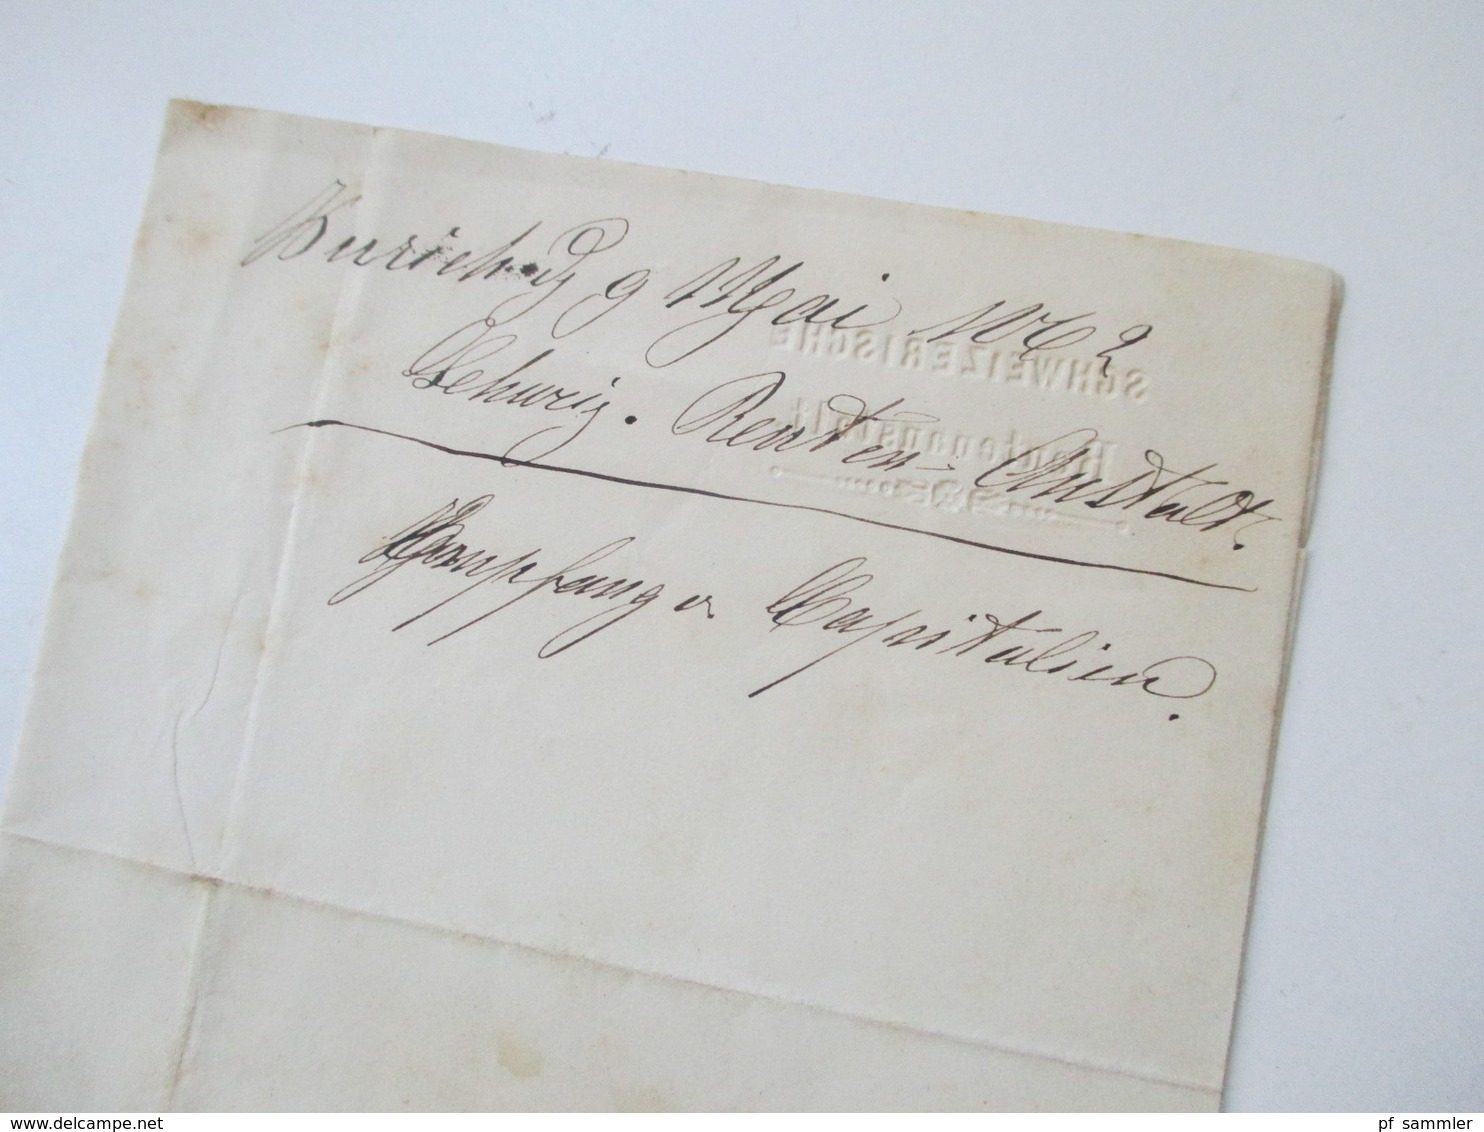 Zurich d 9 Mai 1862
Schweiz. Renten-Anstalt.
Empfang v Capitalien.
SCHWEIZERISCHE
Rentenanstalt
pf sammler